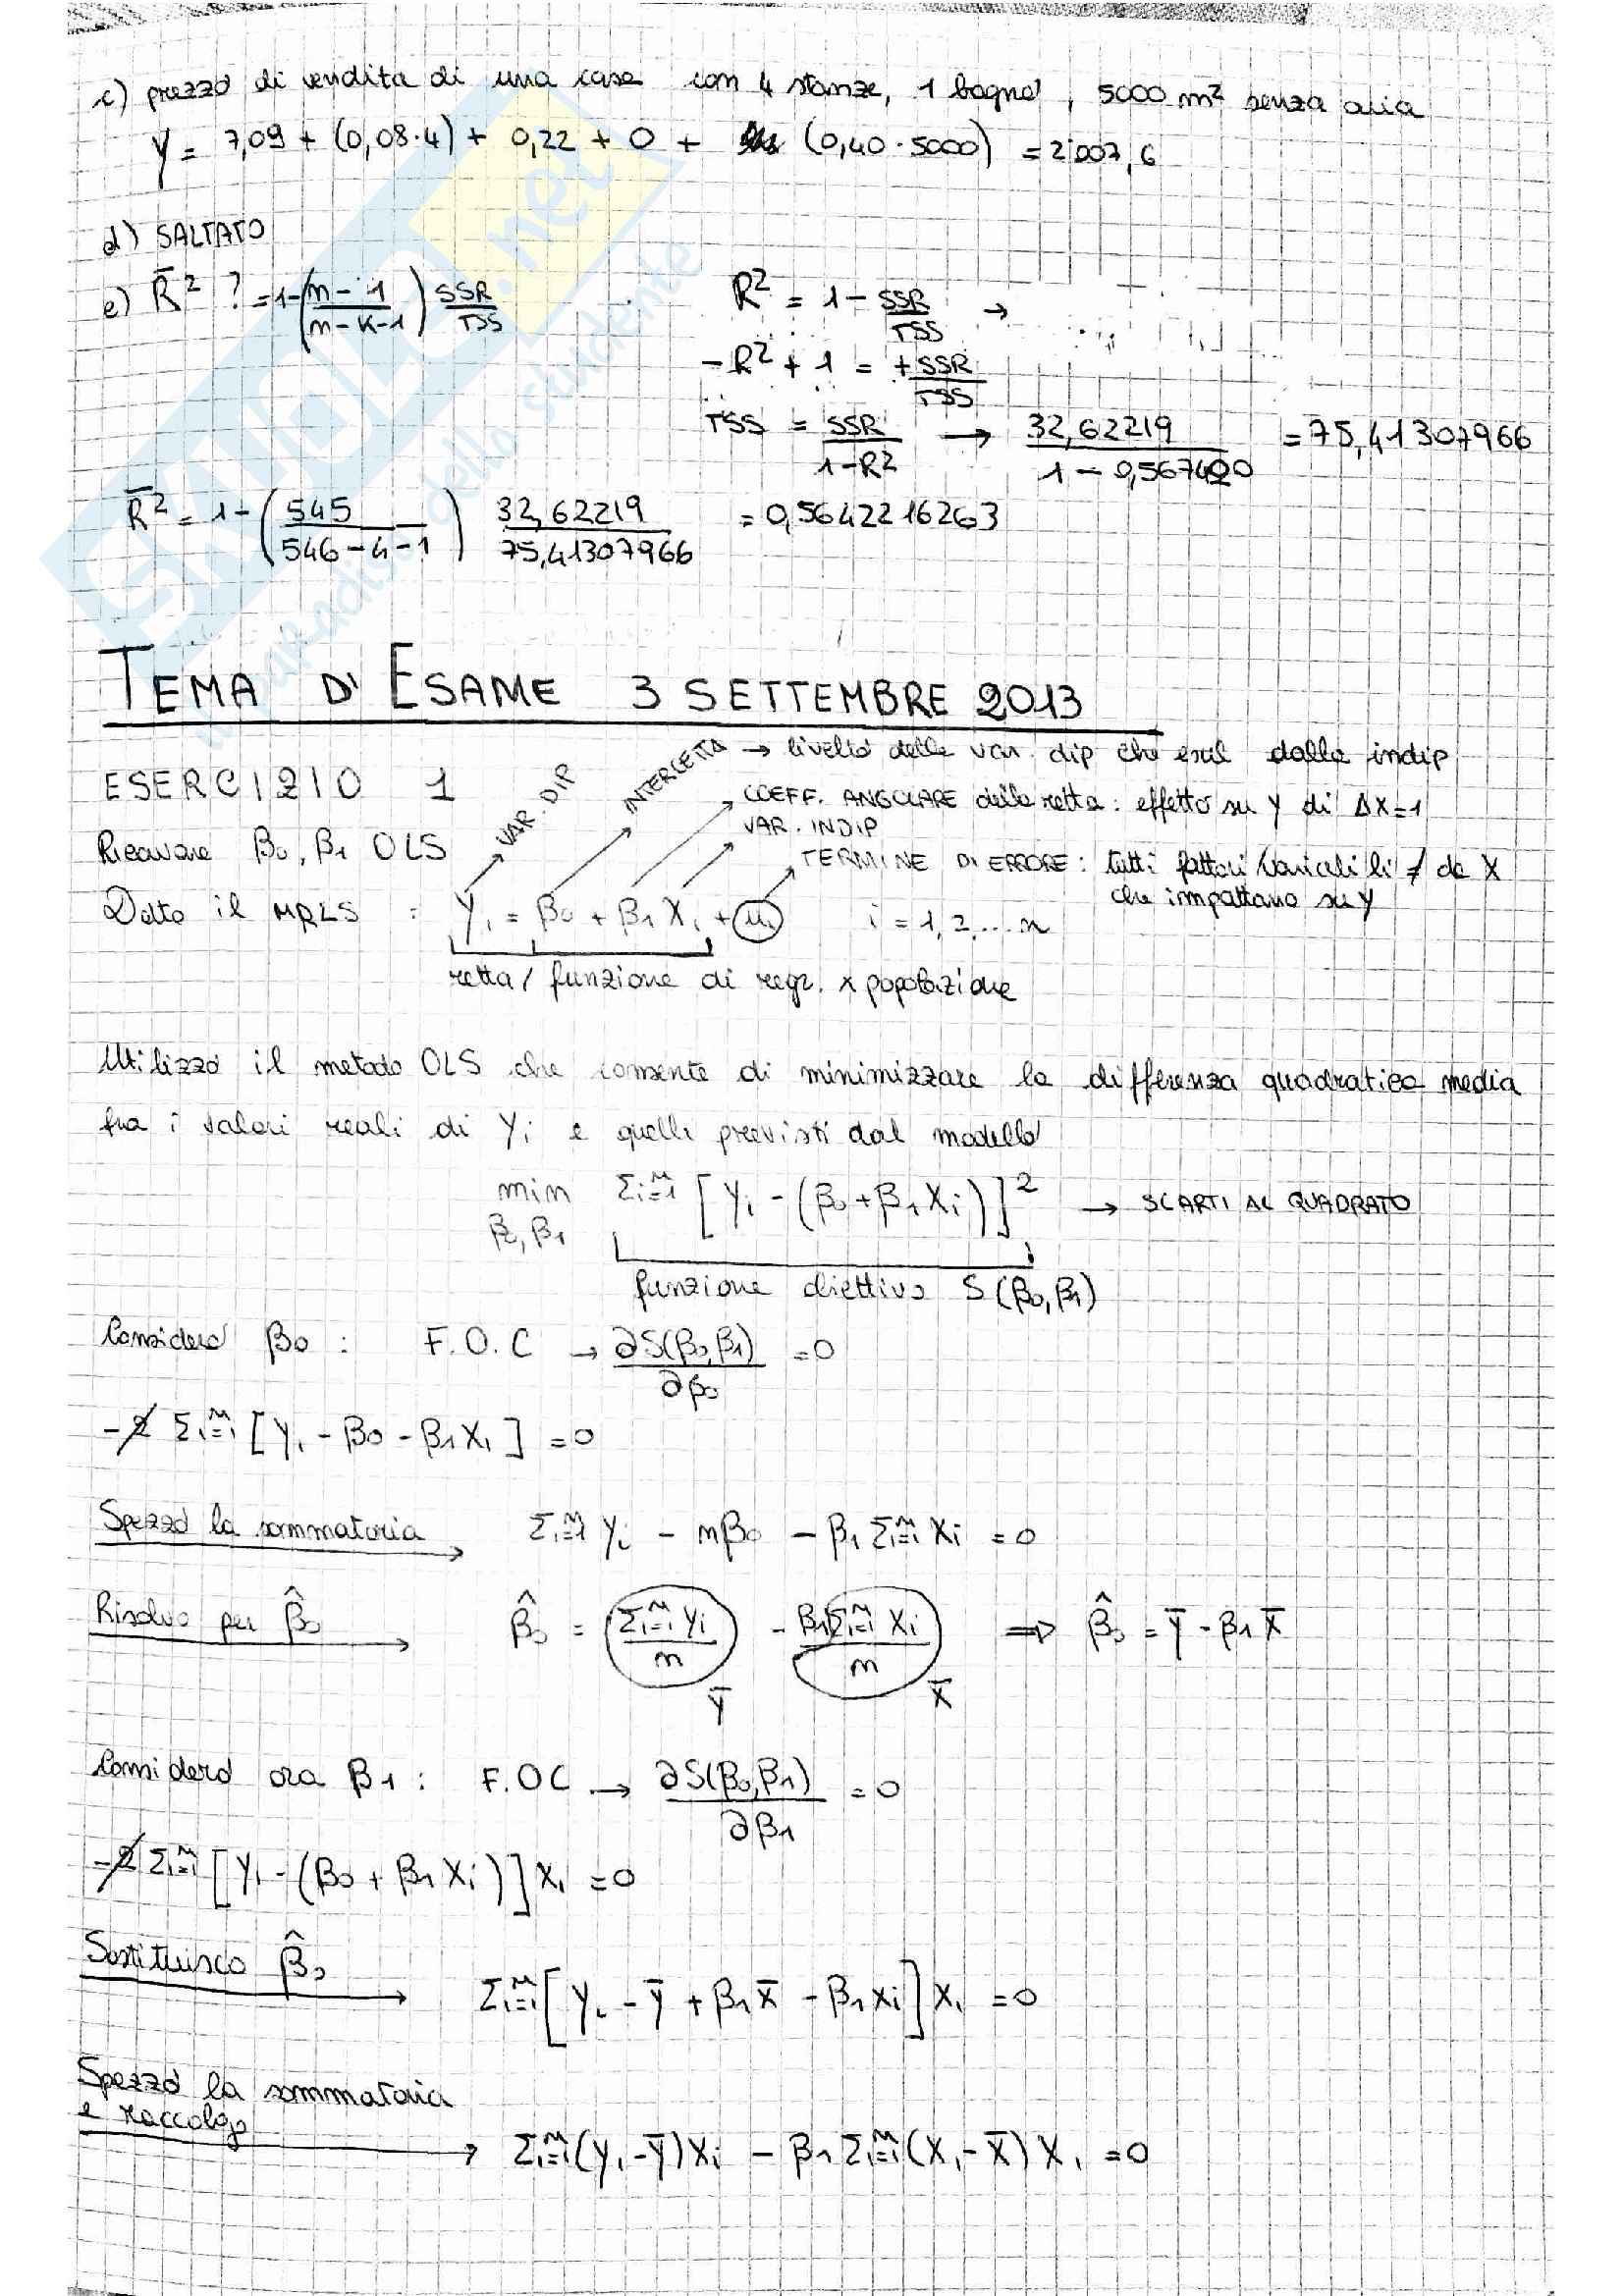 c) prezzo di vendita di una casa con 4 stanze, 1 bagno, 5000 m² senza aria
Y = 7,09 + (0,08·4) + 0,22 + 0 + (0,40·5000) = 2'007,6
d) SALTATO
e) R̄² ? = 1-(n-1/n-k-1) SSR/TSS
R² = 1 - SSR/TSS →
-R² + 1 = + SSR/TSS
TSS = SSR/1-R² → 32,62219/1-0,567420 = 75,41307966
R̄² = 1-(545/546-4-1) 32,62219/75,41307966 = 0,5642216263
TEMA D'ESAME 3 SETTEMBRE 2013
ESERCIZIO 1
INTERCETTA → livello della var. dip che esul dalla indip
VAR. DIP
COEFF. ANGOLARE della retta: effetto su Y di ΔX=1
VAR. INDIP
Ricavare β0, β1 OLS
TERMINE DI ERRORE: tutti fattori/variabili ≠ da X
che impattano su Y
Dato il MRLS : Yi = β0 + β1 Xi + ui i = 1,2,...n
retta/funzione di regr. x popolazione
Utilizzo il metodo OLS che consente di minimizzare la differenza quadratica media
fra i valori reali di Yi e quelli previsti dal modello
min β0,β1 Σi=1ⁿ [Yi - (β0+β1Xi)]² → SCARTI AL QUADRATO
funzione obiettivo S(β0,β1)
Considero β0 : F.O.C → ∂S(β0,β1)/∂β0 = 0
-2 Σi=1ⁿ [Yi - β0 - β1Xi] = 0
Spezzo la sommatoria → Σi=1ⁿ Yi - nβ0 - β1 Σi=1ⁿ Xi = 0
Risolvo per β̂0 → β̂0 = Σi=1ⁿ Yi/n - β1Σi=1ⁿ Xi/n ⇒ β̂0 = Ȳ - β1X̄
Ȳ X̄
Considero ora β1 : F.OC → ∂S(β0,β1)/∂β1 = 0
-2 Σi=1ⁿ [Yi - (β0 + β1Xi)] Xi = 0
Sostituisco β̂0 → Σi=1ⁿ [Yi - Ȳ + β1X̄ - β1Xi] Xi = 0
Spezzo la sommatoria
e raccolgo → Σi=1ⁿ (Yi-Ȳ)Xi - β1 Σi=1ⁿ (Xi-X̄) Xi = 0